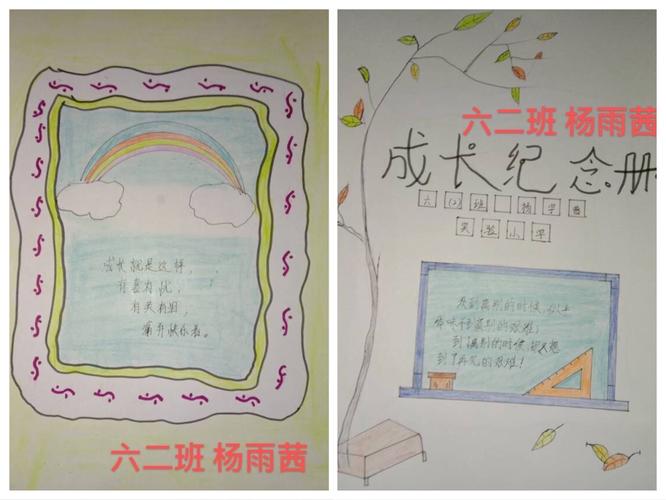 成长就是这样，
有喜有忧，
痛并快乐着。
六二班 杨雨茜
六二班 杨雨茜
成长纪念册
六(2)班 杨
实验小学
到离别的时候，
体味不到离别的艰难；
到离别的时候，又想
到了再见的艰难！